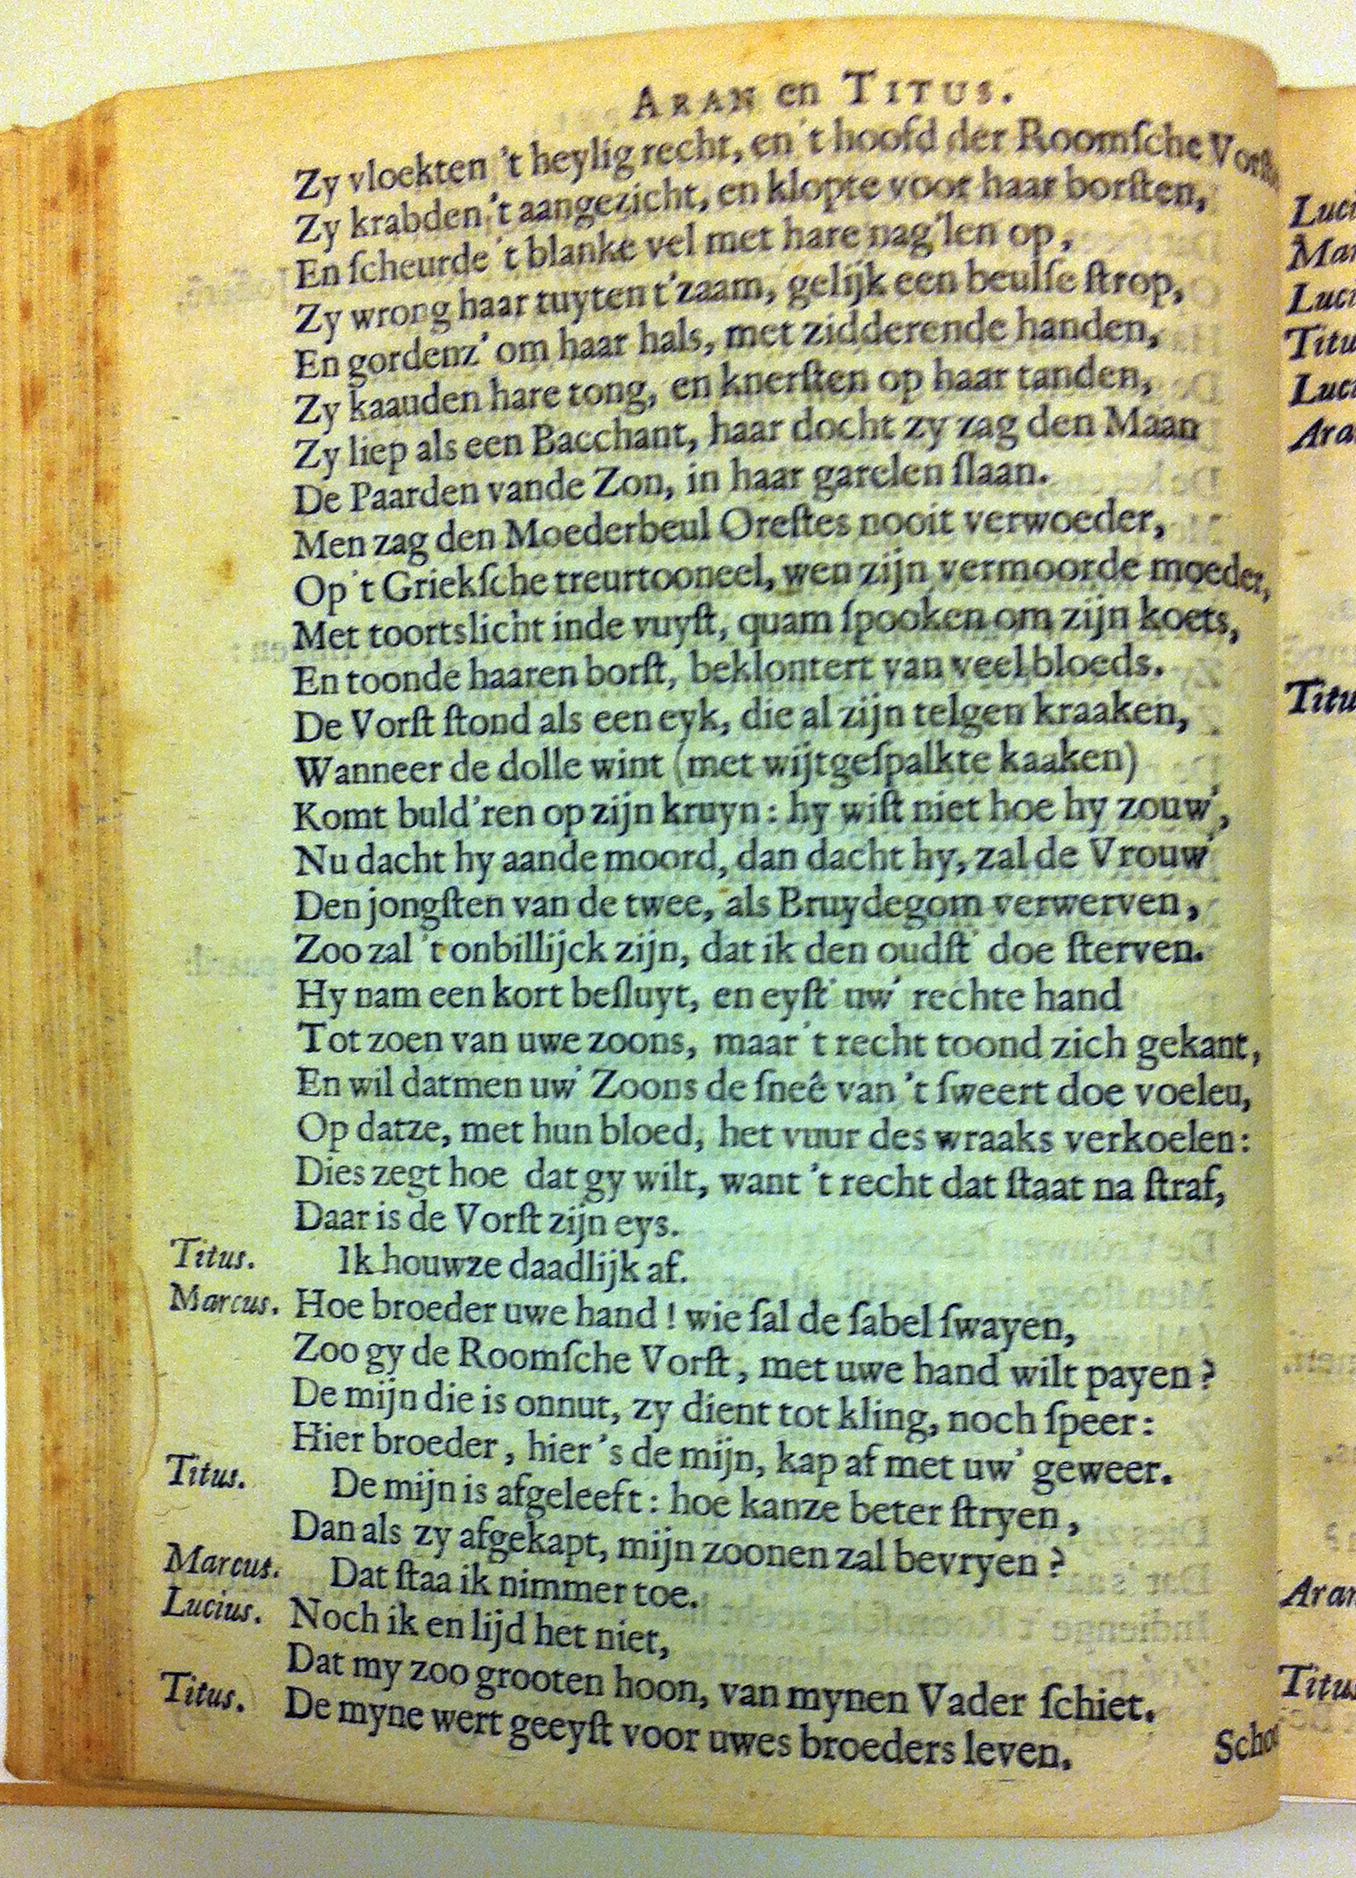 ARAN en TITUS.
Zy vloekten 't heylig recht, en 't hoofd der Roomſche
Zy krabden 't aangezicht, en klopte voor haar borſten,
En ſcheurde 't blanke vel met hare nag'len op,
Zy wrong haar tuyten t'zaam, gelijk een beulſe ſtrop,
En gordenz' om haar hals, met zidderende handen,
Zy kaauden hare tong, en knerſten op haar tanden,
Zy liep als een Bacchant, haar docht zy zag den Maan
De Paarden vande Zon, in haar garelen ſlaan.
Men zag den Moederbeul Oreſtes nooit verwoeder,
Op 't Griekſche treurtooneel, wen zijn vermoorde moeder,
Met toortslicht inde vuyſt, quam ſpooken om zijn koets,
En toonde haaren borſt, beklontert van veel bloeds.
De Vorſt ſtond als een eyk, die al zijn telgen kraaken,
Wanneer de dolle wint (met wijtgeſpalkte kaaken)
Komt buld'ren op zijn kruyn: hy wiſt niet hoe hy zouw',
Nu dacht hy aande moord, dan dacht hy, zal de Vrouw'
Den jongſten van de twee, als Bruydegom verwerven,
Zoo zal 't onbillijck zijn, dat ik den oudſt' doe ſterven.
Hy nam een kort beſluyt, en eyſt' uw' rechte hand
Tot zoen van uwe zoons, maar 't recht toond zich gekant,
En wil datmen uw' Zoons de ſneê van 't ſweert doe voeleu,
Op datze, met hun bloed, het vuur des wraaks verkoelen:
Dies zegt hoe dat gy wilt, want 't recht dat ſtaat na ſtraf,
Daar is de Vorſt zijn eys.
Titus. Ik houwze daadlijk af.
Marcus. Hoe broeder uwe hand! wie ſal de ſabel ſwayen,
Zoo gy de Roomſche Vorſt, met uwe hand wilt payen?
De mijn die is onnut, zy dient tot kling, noch ſpeer:
Hier broeder, hier 's de mijn, kap af met uw' geweer.
Titus. De mijn is afgeleeft: hoe kanze beter ſtryen,
Dan als zy afgekapt, mijn zoonen zal bevryen?
Marcus. Dat ſtaa ik nimmer toe.
Lucius. Noch ik en lijd het niet,
Dat my zoo grooten hoon, van mynen Vader ſchiet.
Titus. De myne wert geeyſt voor uwes broeders leven.